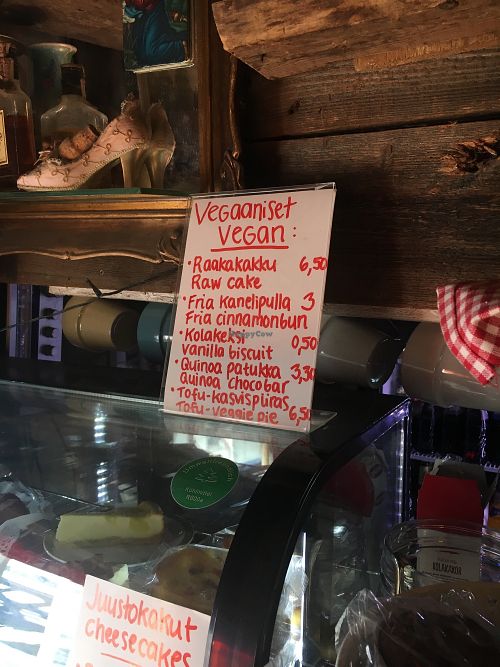 Vegaaniset
VEGAN:
• Raakakakku 6,50
Raw cake
• Fria kanelipulla 3
Fria cinnamonbun
• Kolakeksi 0,50
vanilla biscuit
• Quinoa patukka 3,50
quinoa chocobar
• Tofu-kasvispiiras
Tofu-veggie pie 6,50
HappyCow
KOLAKAKOR
Juustokakut
cheesecakes